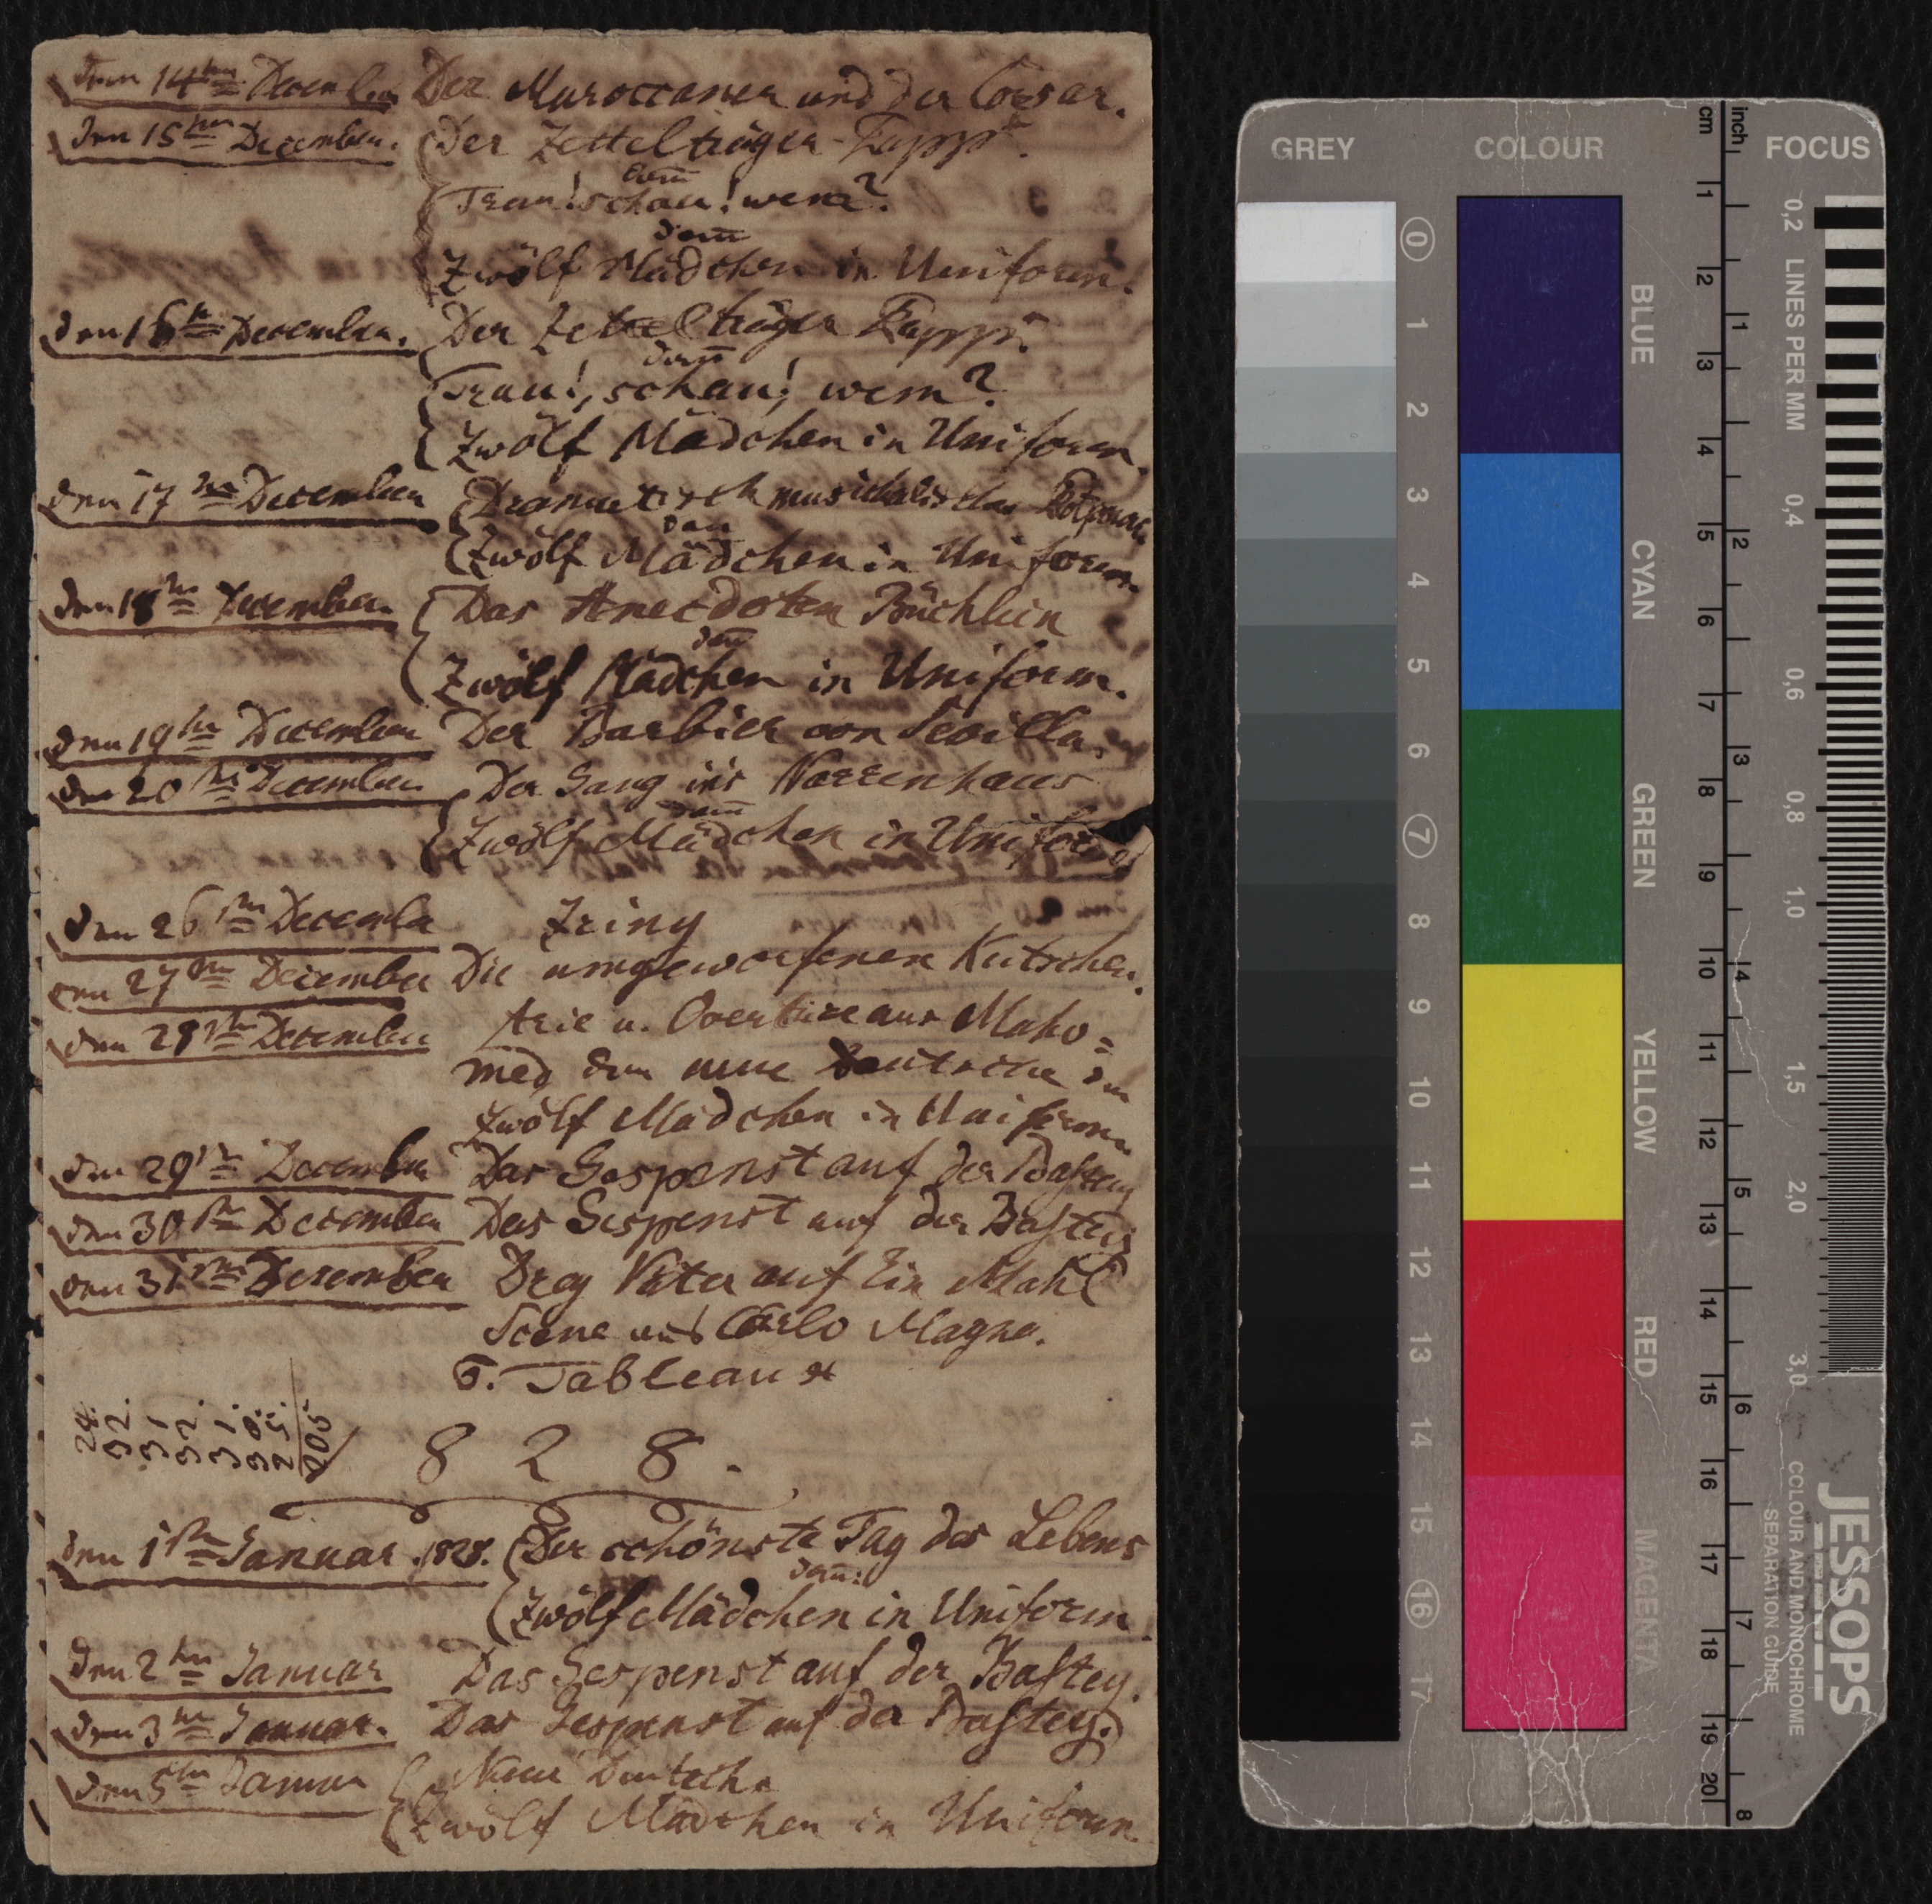 den 14ten December Der Maroccaner und der Corsar.
den 15ten December. Der Zettelträger Papp.
dann
Trau! schau! wem?
dann
Zwölf Mädchen in Uniform.
den 16tn December. Der Zettelträger Papp.
dann
Trau!, schau! wem?
Zwölf Mädchen in Uniform.
den 17ten December Dramatisch musikalisches Potpourri
dan
Zwölf Mädchen in Uniform.
den 18tn December Das Anecdoten Büchlein
dann
Zwölf Mädchen in Uniform.
den 19tn December Der Barbier von Sevilla.
den 20tn December Der Gang in's Narrenhaus
dann
Zwölf Mädchen in Uniform
den 26ten December Zriny
den 27ten December Die umgeworfenen Kutschen.
den 28ten December Arie u. Overture aus Maho=
med den neue
Zwölf Mädchen in Uniform
den 29tn December Das Gespenst auf der Bastey
den 30tn December Das Gespenst auf der Bastey
den 31ten December Drey Väter auf Ein Mahl
Scene aus Carlo Magno.
Tableaux
32.
31
32.
31.
30.
25.
205
8 2 8.
den 1ten Januar 1828. Der schönste Tag des Lebens
dann:
Zwölf Mädchen in Uniform.
den 2ten Januar Das Gespenst auf der Bastey.
den 3ten Januar. Das Gespenst auf der Bastey.
den 5ten Januar
Zwölf Mädchen in Uniform.
GREY COLOUR cm inch FOCUS
0 1 2 3 4 5 6 7 8 9 10 11 12 13 14 15 16 17
BLUE
CYAN
GREEN
YELLOW
RED
MAGENTA
1 2 3 4 5 6 7 8 9 10 11 12 13 14 15 16 17 18 19 20
1 2 3 4 5 6 7 8
0,2 LINES PER MM 0,4 0,6 0,8 1,0 1,5 2,0 3,0
JESSOPS
COLOUR AND MONOCHROME
SEPARATION GUIDE